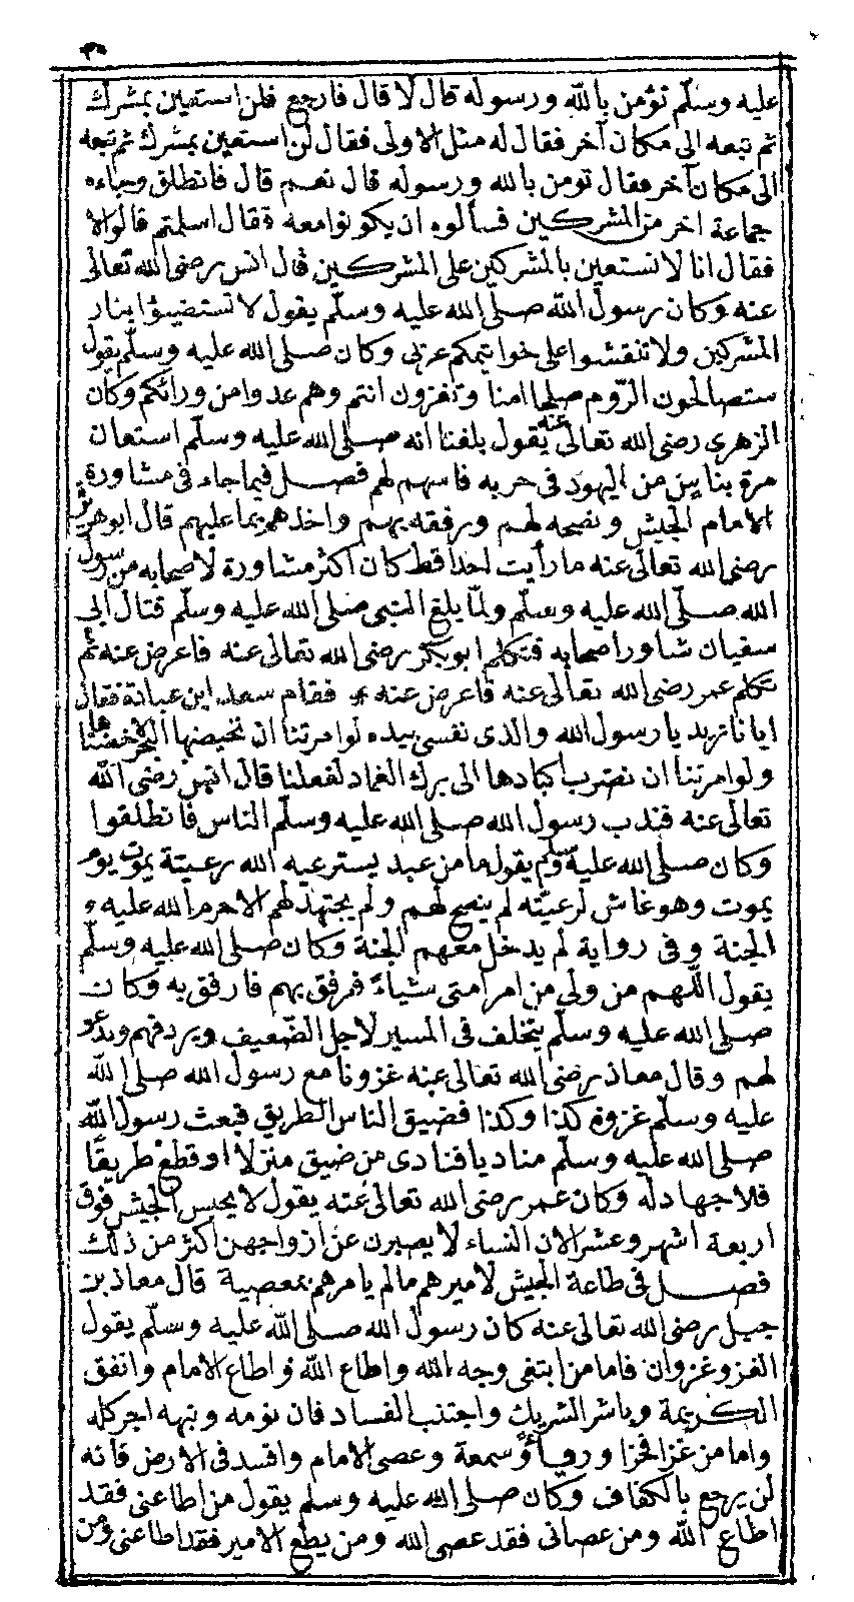 عليه وسلم تؤمن بالله ورسوله قال لا قال فارجع فلن استعين بمشرك
ثم تبعه الى مكان آخر فقال له مثل الاولى فقال لن استعين بمشرك ثم تبعه
الى مكان آخر فقال تومن بالله ورسوله قال نعم قال فانطلق وجاءه
جماعة اخر من المشركين فسألوه ان يكونوا معه فقال اسلمتم قالوا لا
فقال انا لا نستعين بالمشركين على المشركين قال انس رضى الله تعالى
عنه وكان رسول الله صلى الله عليه وسلم يقول لا تستضيؤا بنار
المشركين ولا تنقشوا على خواتيمكم عربى وكان صلى الله عليه وسلم يقول
ستصالحون الروم صلحا امنا وتغزون انتم وهم عدوا من ورائكم وكان
الزهرى رضى الله تعالى عنه يقول بلغنا انه صلى الله عليه وسلم استعان
مرة بناس من اليهود فى حربه فاسهم لهم فصل فيما جاء فى مشاورة
الامام الجيش ونصحه لهم ورفقه بهم واخذهم بما عليهم قال ابو هريرة
رضى الله تعالى عنه ما رأيت احدا قط كان اكثر مشاورة لاصحابه من رسول
الله صلى الله عليه وسلم ولما بلغ النبى صلى الله عليه وسلم قتال ابى
سفيان شاور اصحابه فتكلم ابو بكر رضى الله تعالى عنه فاعرض عنه ثم
تكلم عمر رضى الله تعالى عنه فاعرض عنه فقام سعد ابن عبادة فقال
ايانا تريد يا رسول الله والذى نفسى بيده لو امرتنا ان نخيضها البحر لاخضناها
ولو امرتنا ان نضرب اكبادها الى برك الغماد لفعلنا قال انس رضى الله
تعالى عنه فندب رسول الله صلى الله عليه وسلم الناس فانطلقوا
وكان صلى الله عليه وسلم يقول ما من عبد يسترعيه الله رعيتة يموت يوم
يموت وهو غاش لرعيته لم ينصح لهم ولم يجتهد لهم الا حرم الله عليه
الجنة وفى رواية لم يدخل معهم الجنة وكان صلى الله عليه وسلم
يقول اللهم من ولى من امر امتى شياء فرفق بهم فارفق به وكان
صلى الله عليه وسلم يتخلف فى المسير لاجل الضعيف ويردفهم ويدعو
لهم وقال معاذ رضى الله تعالى عنه غزونا مع رسول الله صلى الله
عليه وسلم غزوة كذا وكذا فضيق الناس الطريق فبعث رسول الله
صلى الله عليه وسلم مناديا فنادى من ضيق منزلا او قطع طريقا
فلا جهاد له وكان عمر رضى الله تعالى عنه يقول لا يحبس الجيش فوق
اربعة اشهر وعشر الان النساء لا يصبرن عن ازواجهن اكثر من ذلك
فصل فى طاعة الجيش لاميرهم مالم يامرهم بمعصية قال معاذ بن
جبل رضى الله تعالى عنه كان رسول الله صلى الله عليه وسلم يقول
الغزو غزوان فاما من ابتغى وجه الله واطاع الله واطاع الامام وانفق
الكريمة وياشر الشريك واجتنب الفساد فان نومه ونبهه اجر كله
واما من غزا فخرا ورياء وسمعة وعصى الامام وافسد فى الارض فانه
لن يرجع بالكفاف وكان صلى الله عليه وسلم يقول من اطاعنى فقد
اطاع الله ومن عصانى فقد عصى الله ومن يطع الامير فقد اطاعنى ومن